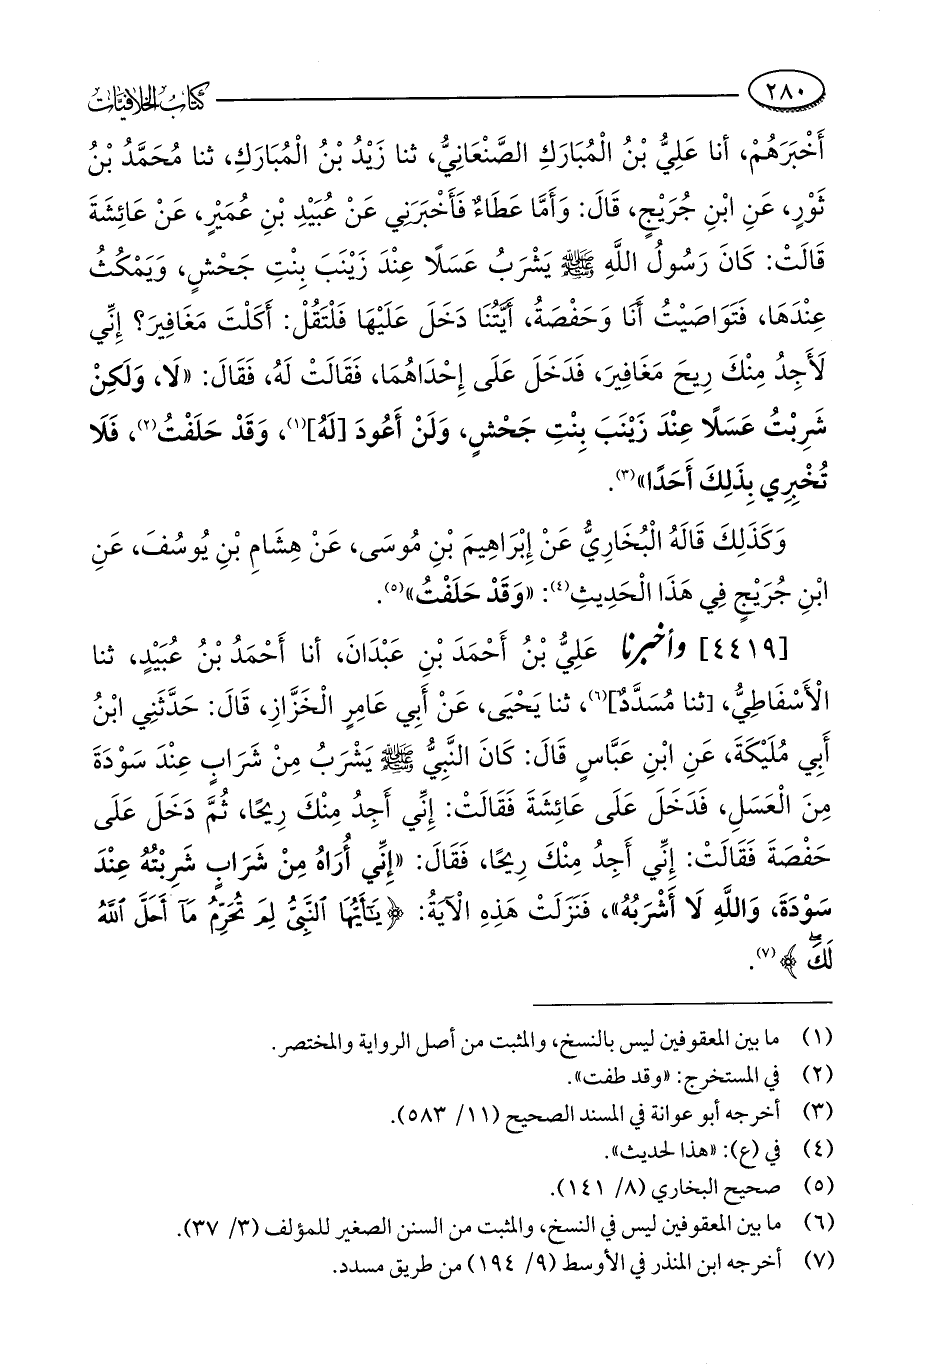 ٢٨٠ كتاب الخلافيات
أَخْبَرَهُمْ، أنا عَلِيُّ بْنُ الْمُبَارَكِ الصَّنْعَانِيُّ، ثنا زَيْدُ بْنُ الْمُبَارَكِ، ثنا مُحَمَّدُ بْنُ
ثَوْرٍ، عَنِ ابْنِ جُرَيْجٍ، قَالَ: وَأَمَّا عَطَاءٌ فَأَخْبَرَنِي عَنْ عُبَيْدِ بْنِ عُمَيْرٍ، عَنْ عَائِشَةَ
قَالَتْ: كَانَ رَسُولُ اللَّهِ ﷺ يَشْرَبُ عَسَلًا عِنْدَ زَيْنَبَ بِنْتِ جَحْشٍ، وَيَمْكُثُ
عِنْدَهَا، فَتَوَاصَيْتُ أَنَا وَحَفْصَةُ، أَيَّتُنَا دَخَلَ عَلَيْهَا فَلْتَقُلْ: أَكَلْتَ مَغَافِيرَ؟ إِنِّي
لَأَجِدُ مِنْكَ رِيحَ مَغَافِيرَ، فَدَخَلَ عَلَى إِحْدَاهُمَا، فَقَالَتْ لَهُ، فَقَالَ: «لَا، وَلَكِنْ
شَرِبْتُ عَسَلًا عِنْدَ زَيْنَبَ بِنْتِ جَحْشٍ، وَلَنْ أَعُودَ [لَهُ](١)، وَقَدْ حَلَفْتُ(٢)، فَلَا
تُخْبِرِي بِذَلِكَ أَحَدًا»(٣).
وَكَذَلِكَ قَالَهُ الْبُخَارِيُّ عَنْ إِبْرَاهِيمَ بْنِ مُوسَى، عَنْ هِشَامِ بْنِ يُوسُفَ، عَنِ
ابْنِ جُرَيْجٍ فِي هَذَا الْحَدِيثِ(٤): «وَقَدْ حَلَفْتُ»(٥).
[٤٤١٩] وأخبرنا عَلِيُّ بْنُ أَحْمَدَ بْنِ عَبْدَانَ، أنا أَحْمَدُ بْنُ عُبَيْدٍ، ثنا
الْأَسْفَاطِيُّ، [ثنا مُسَدَّدٌ](٦)، ثنا يَحْيَى، عَنْ أَبِي عَامِرٍ الْخَزَّازِ، قَالَ: حَدَّثَنِي ابْنُ
أَبِي مُلَيْكَةَ، عَنِ ابْنِ عَبَّاسٍ قَالَ: كَانَ النَّبِيُّ ﷺ يَشْرَبُ مِنْ شَرَابٍ عِنْدَ سَوْدَةَ
مِنَ الْعَسَلِ، فَدَخَلَ عَلَى عَائِشَةَ فَقَالَتْ: إِنِّي أَجِدُ مِنْكَ رِيحًا، ثُمَّ دَخَلَ عَلَى
حَفْصَةَ فَقَالَتْ: إِنِّي أَجِدُ مِنْكَ رِيحًا، فَقَالَ: «إِنِّي أُرَاهُ مِنْ شَرَابٍ شَرِبْتُهُ عِنْدَ
سَوْدَةَ، وَاللَّهِ لَا أَشْرَبُهُ»، فَنَزَلَتْ هَذِهِ الْآيَةُ: ﴿يَٰٓأَيُّهَا ٱلنَّبِيُّ لِمَ تُحَرِّمُ مَآ أَحَلَّ ٱللَّهُ
لَكَۖ﴾(٧).
(١) ما بين المعقوفين ليس بالنسخ، والمثبت من أصل الرواية والمختصر.
(٢) في المستخرج: «وقد طفت».
(٣) أخرجه أبو عوانة في المسند الصحيح (١١/ ٥٨٣).
(٤) في (ع): «هذا لحديث».
(٥) صحيح البخاري (٨/ ١٤١).
(٦) ما بين المعقوفين ليس في النسخ، والمثبت من السنن الصغير للمؤلف (٣/ ٣٧).
(٧) أخرجه ابن المنذر في الأوسط (٩/ ١٩٤) من طريق مسدد.